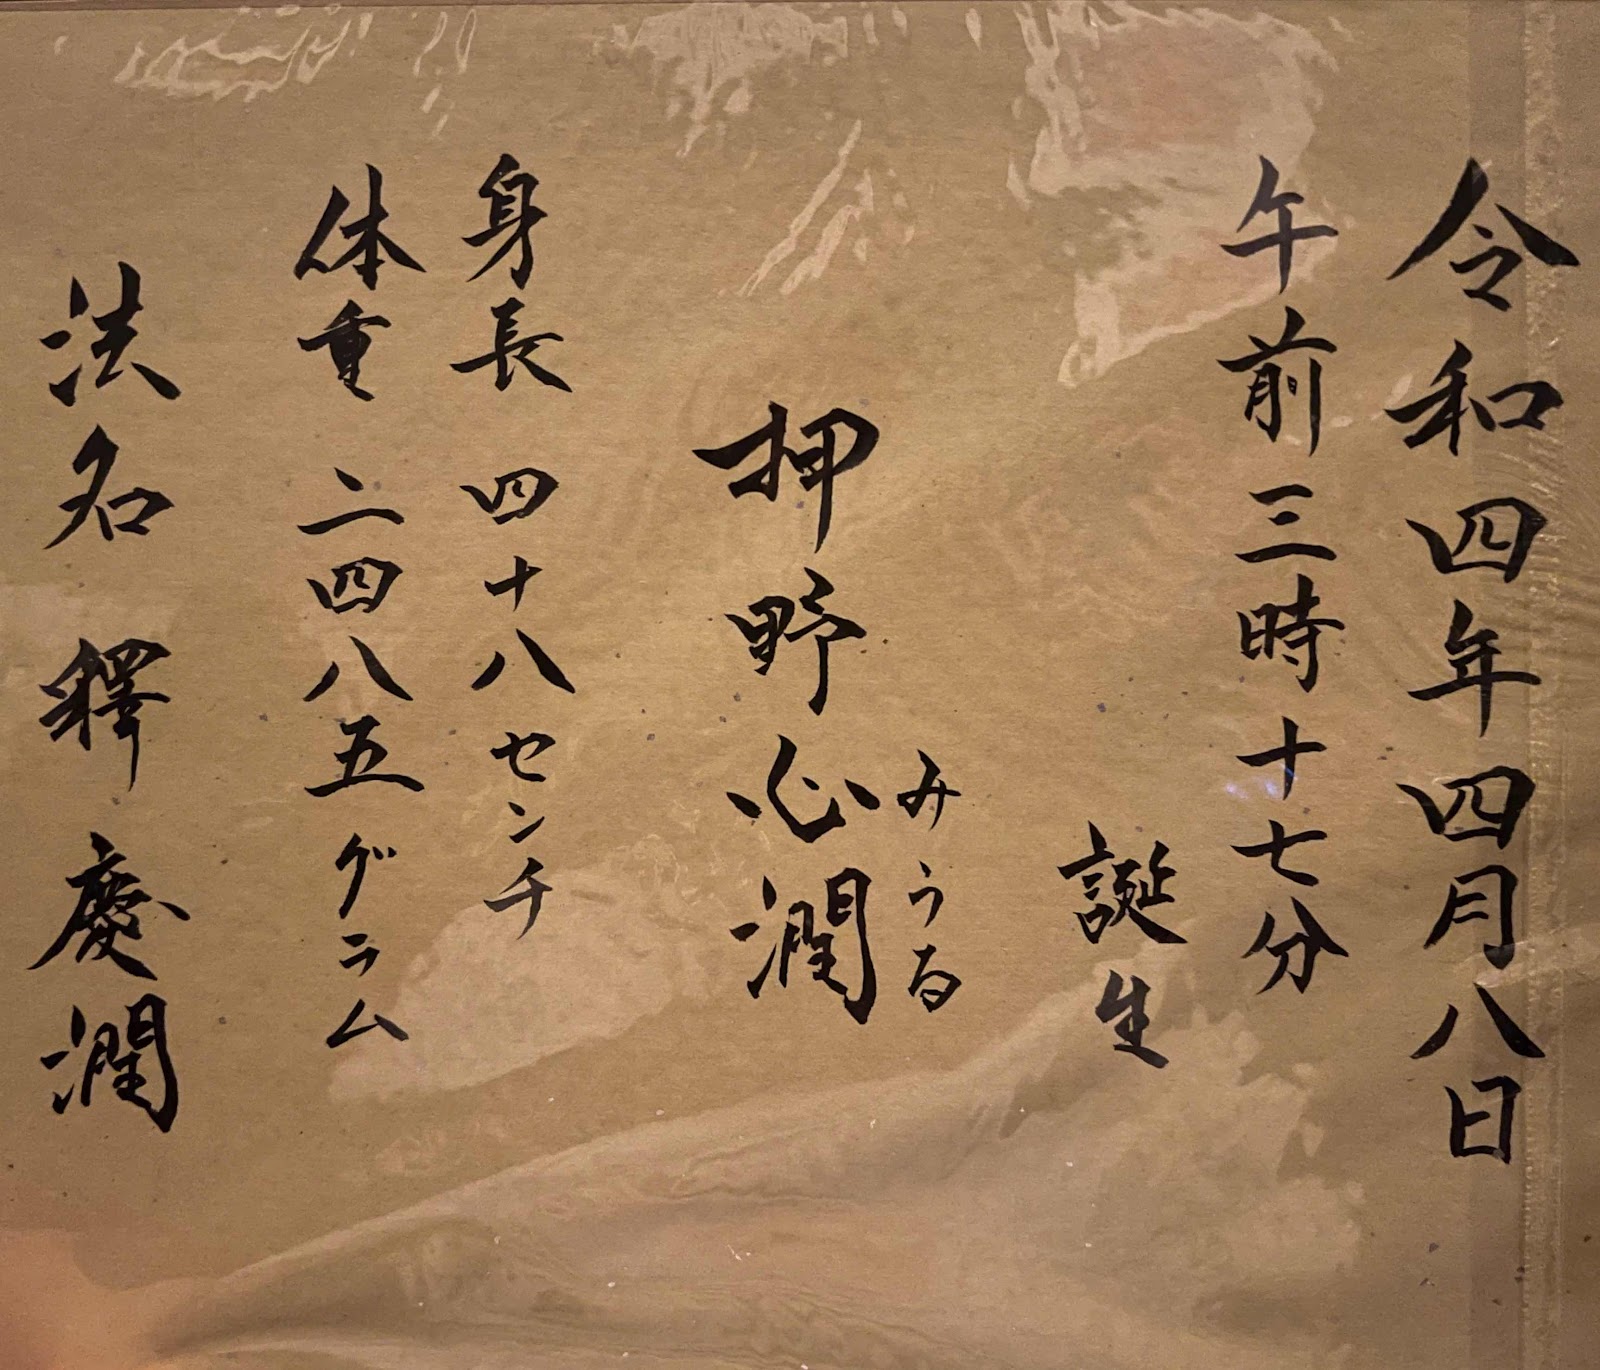 令和四年四月八日
午前三時十七分
誕生
みうる
押野心潤
身長 四十八センチ
体重 二四八五グラム
法名 釋慶潤